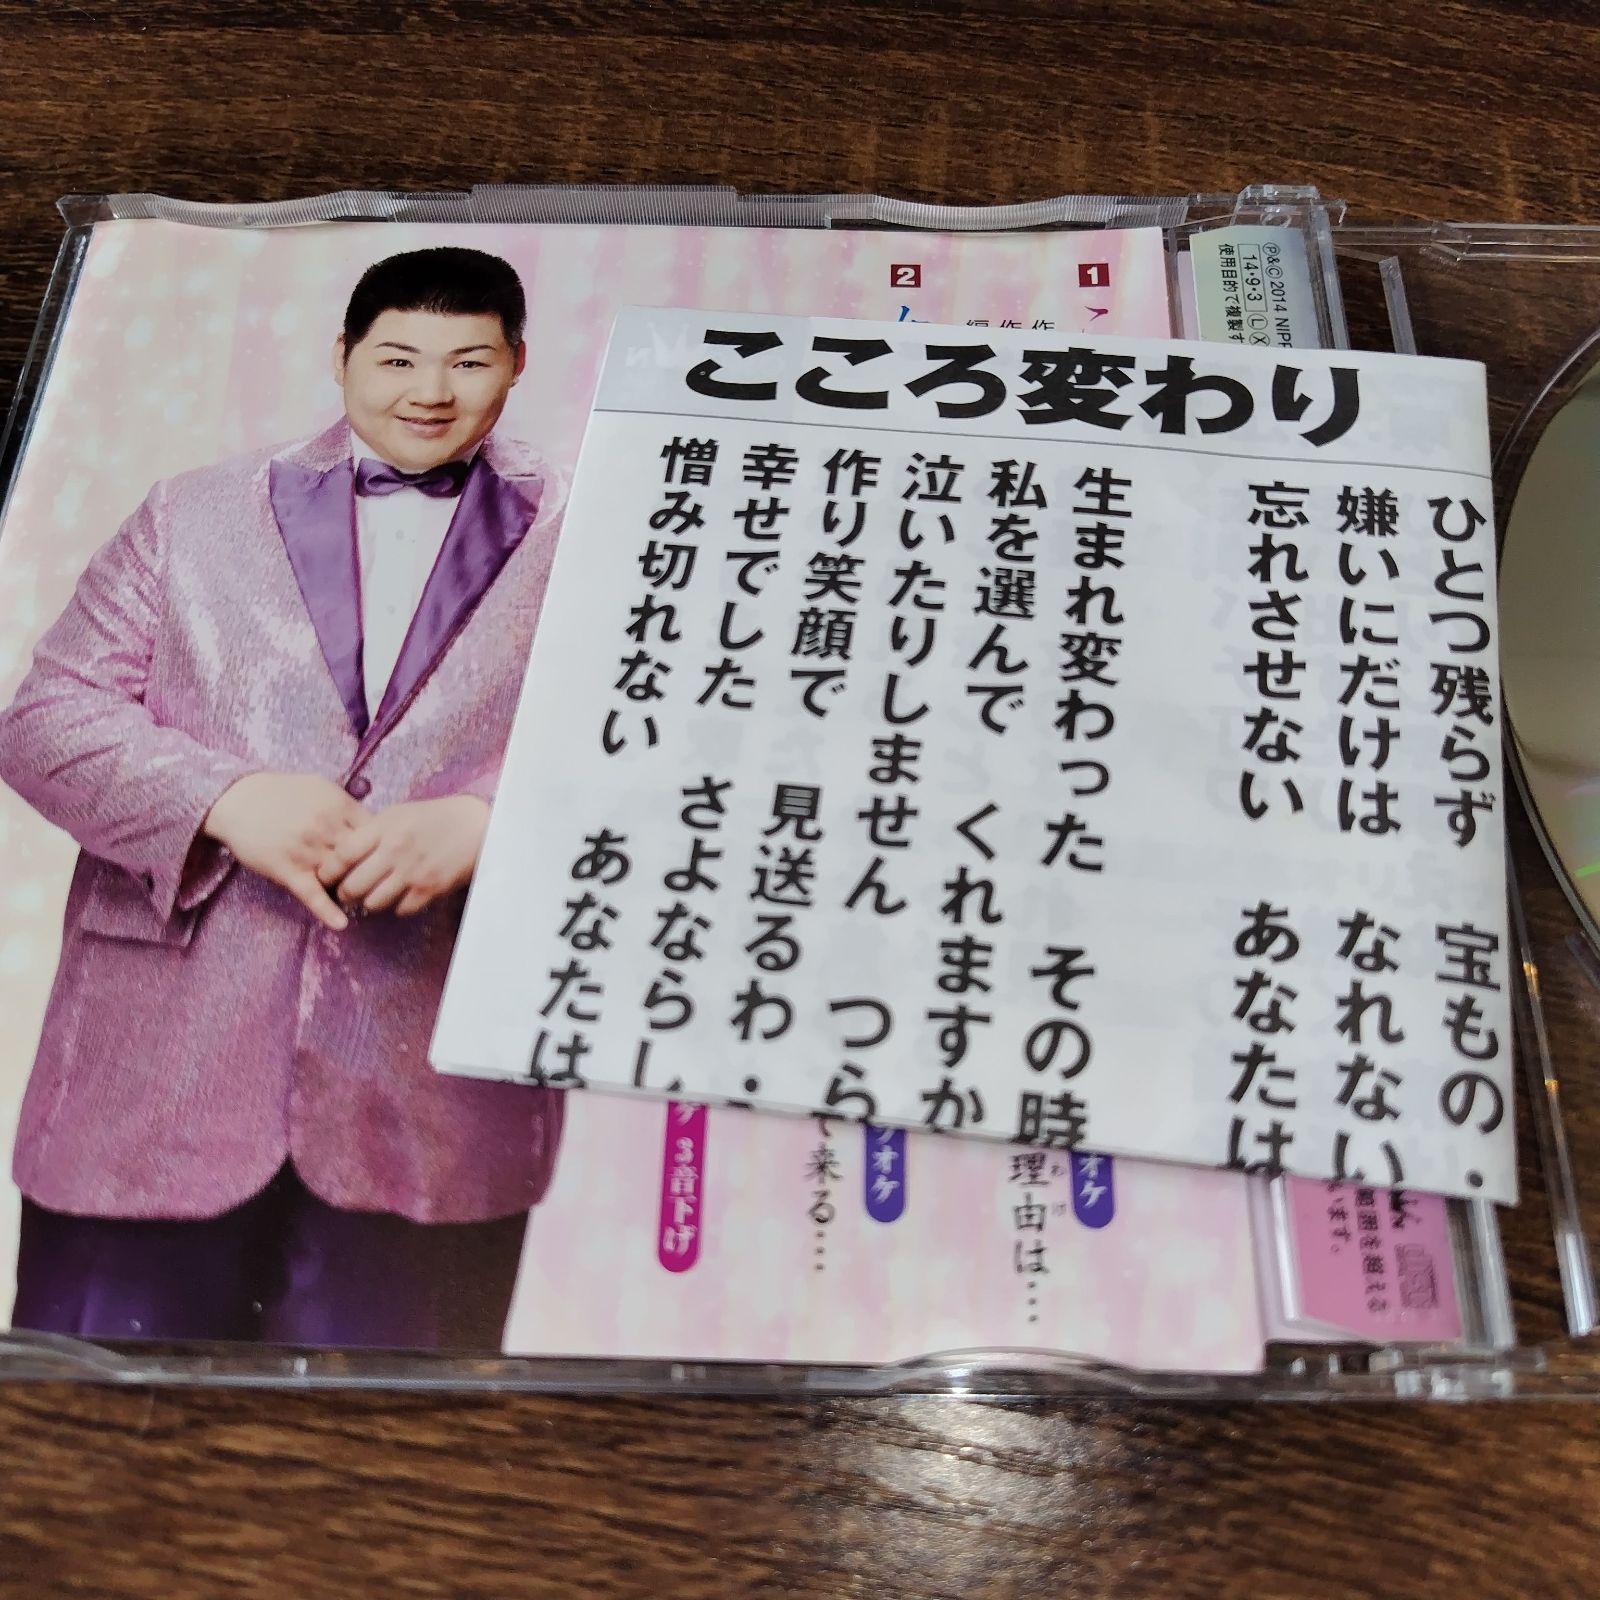 こころ変わり
ひとつ残らず 宝もの・
嫌いにだけは なれない
忘れさせない あなたは
生まれ変わった その時
私を選んで くれますか
泣いたりしません つら
作り笑顔で 見送るわ・
幸せでした さよならし
憎み切れない あなたは
1
2
オケ
理由は…
わけ
オケ
て来る…
ケ 3音下げ
Ⓟ&Ⓒ2014 NIPP
14・9・3 Ⓛ Ⓧ
使用目的で複製す
範囲を超える
います。